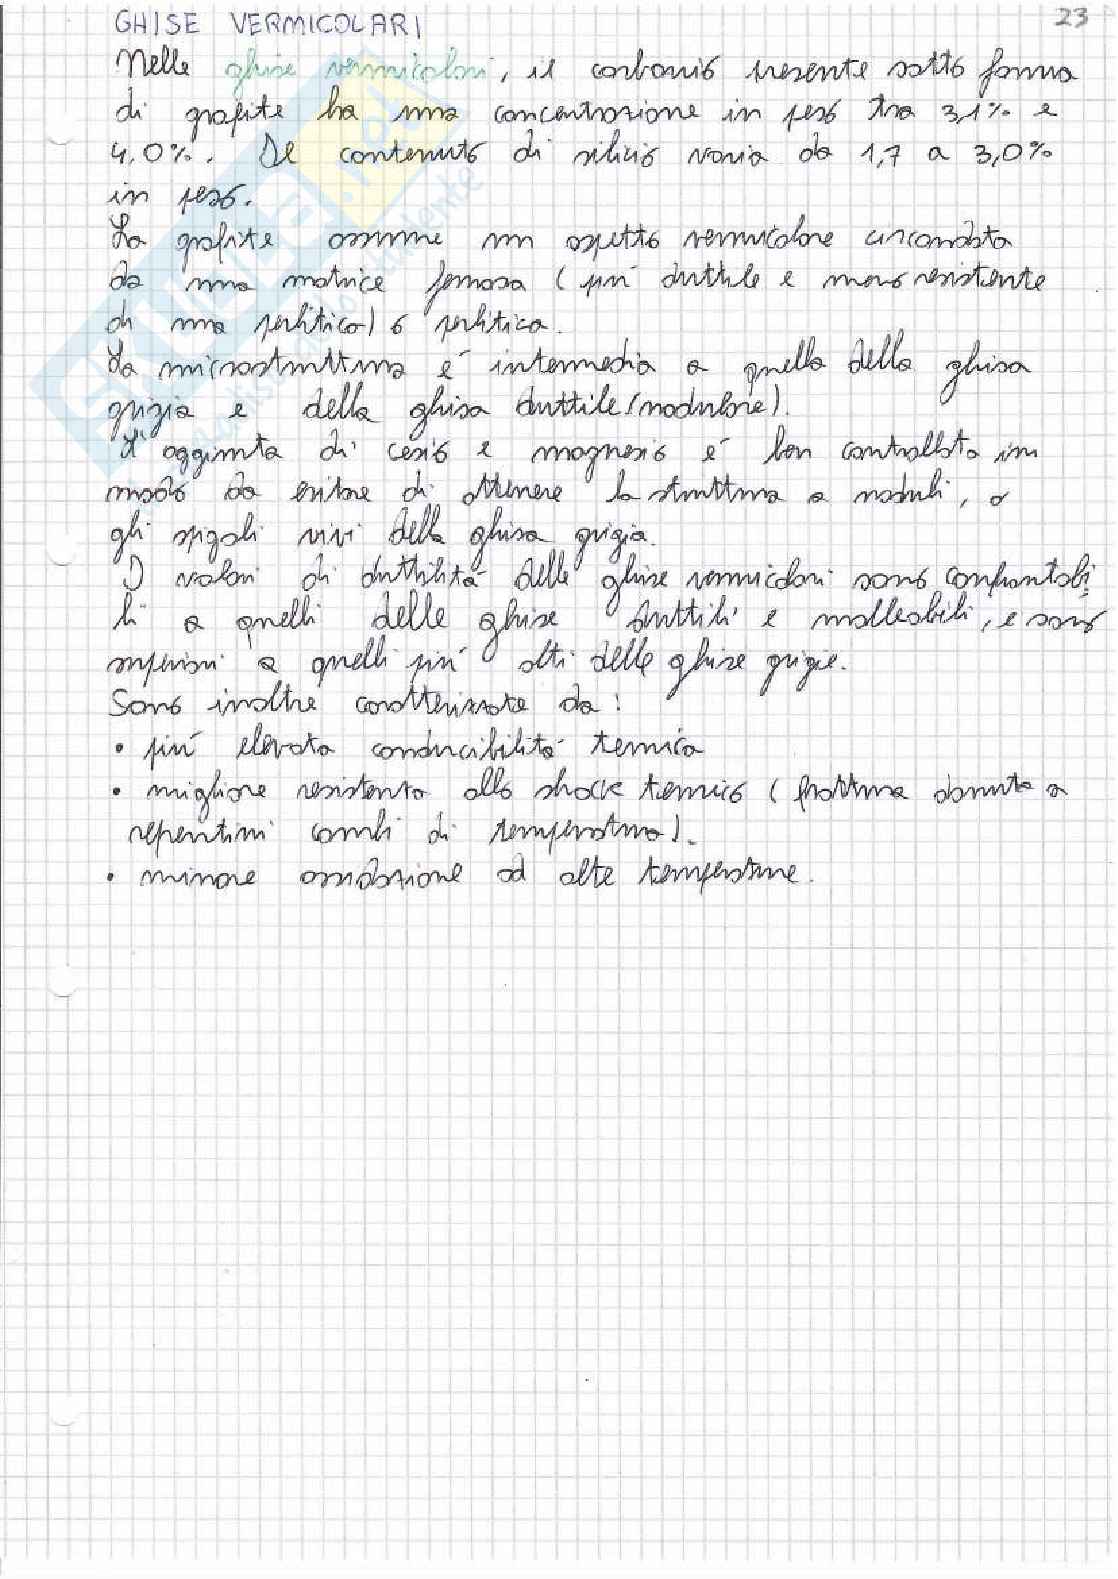 GHISE VERMICOLARI
23
Nelle ghise vermicolari, il carbonio presente sotto forma
di grafite ha una concentrazione in peso tra 3,1% e
4,0%. Il contenuto di silicio varia da 1,7 a 3,0%
in peso.
La grafite assume un aspetto vermicolare circondata
da una matrice ferrosa (più duttile e meno resistente
di una perlitica) o perlitica.
La microstruttura é intermedia a quella della ghisa
grigia e della ghisa duttile (nodulare).
L'aggiunta di cesio e magnesio é ben controllata in
modo da evitare di ottenere la struttura a noduli, o
gli spigoli vivi della ghisa grigia.
I valori di duttilità delle ghise vermicolari sono confrontabi
li a quelli delle ghise duttili e malleabili, e sono
superiori a quelli più alti delle ghise grigie.
Sono inoltre caratterizzate da:
• più elevata conducibilità termica
• migliore resistenza allo shock termico (frattura dovuta a
repentini cambi di temperatura).
• minore ossidazione ad alte temperature.
SKUOLA.net